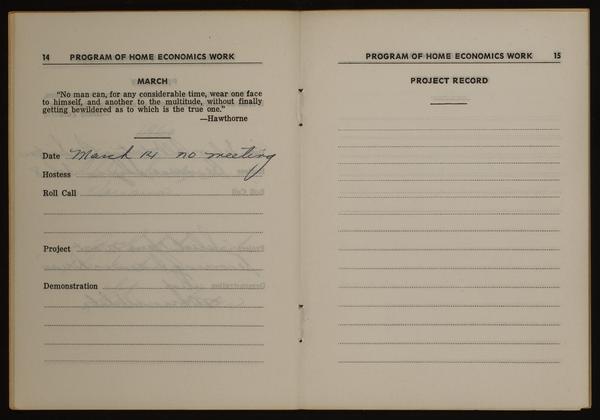 14 PROGRAM OF HOME ECONOMICS WORK
MARCH
"No man can, for any considerable time, wear one face
to himself, and another to the multitude, without finally
getting bewildered as to which is the true one."
—Hawthorne
Date March 14 no meeting
Hostess
Roll Call
Project
Demonstration
PROGRAM OF HOME ECONOMICS WORK 15
PROJECT RECORD